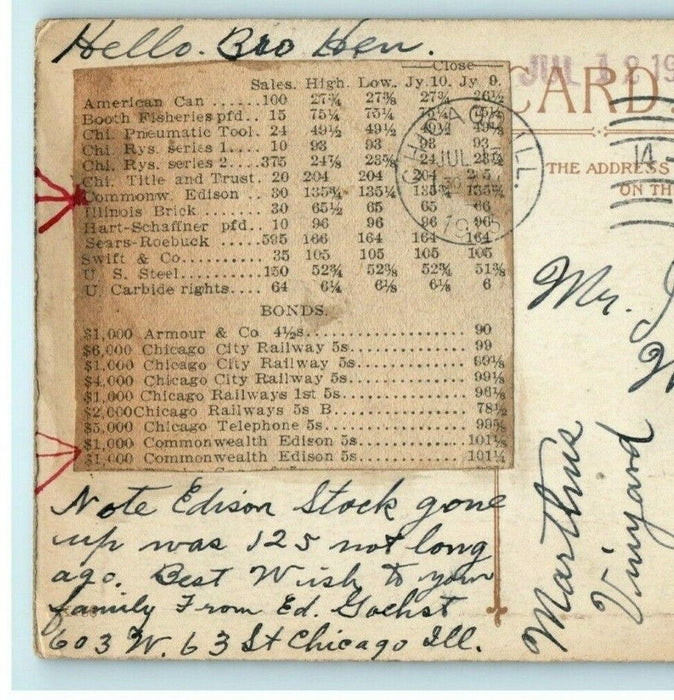 Hello. Bro Hen.
Close
Sales. High. Low. Jy. 10. Jy 9.
American Can ......100 27¾ 27⅜ 27¾ 26½
Booth Fisheries pfd.. 15 75¼ 75¼ 75¼ 75¼
Chi. Pneumatic Tool. 24 49½ 49½ 49½ 49½
Chi. Rys. series 1.... 10 93 93 93 93
Chi. Rys. series 2....375 24⅞ 23⅝ 24 23½
Chi. Title and Trust. 20 204 204 204 205
Commonw. Edison .. 30 135¾ 135¼ 135¾ 135¾
Illinois Brick ....... 30 65½ 65 65 66
Hart-Schaffner pfd.. 10 96 96 96 96
Sears-Roebuck .....595 166 164 164 164
Swift & Co.......... 35 105 105 105 105
U. S. Steel..........150 52¾ 52⅜ 52¾ 51⅜
U. Carbide rights.... 64 6¼ 6⅛ 6⅛ 6
BONDS.
$1,000 Armour & Co 4½s.................... 90
$6,000 Chicago City Railway 5s............. 99
$1,000 Chicago City Railway 5s............. 99⅛
$4,000 Chicago City Railway 5s............. 99⅛
$1,000 Chicago Railways 1st 5s............. 96⅛
$2,000 Chicago Railways 5s B............... 78½
$5,000 Chicago Telephone 5s................ 99⅝
$1,000 Commonwealth Edison 5s............ 101⅛
$1,000 Commonwealth Edison 5s............ 101¼
Note Edison Stock gone
up was 125 not long
ago. Best Wish to your
family From Ed.
603 W. 63 St Chicago Ill.
JUL 12 19
CARD
CHICAGO, ILL.
JUL
14
THE ADDRESS
ON TH
Mr.
Marthus
Vinyard